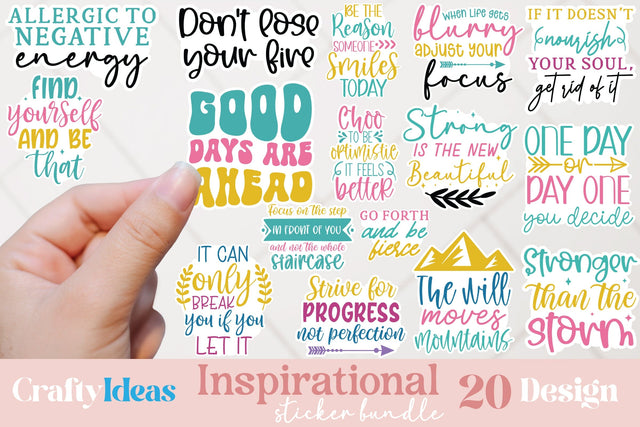 ALLERGIC TO
NEGATIVE
energy
Don't lose
your fire
BE THE
Reason
SOMEONE
Smiles
TODAY
WHEN LIFE GETS
blurry
ADJUST YOUR
focus
IF IT DOESN'T
nourish
YOUR SOUL,
get rid of it
FIND
yourself
AND BE
that
GOOD
DAYS ARE
AHEAD
Choo
TO BE
optimistic
IT FEELS
better
Strong
IS THE NEW
Beautiful
ONE DAY
or
DAY ONE
you decide
Focus on the step
IN FRONT OF YOU
and not the whole
staircase
GO FORTH
and be
fierce
IT CAN
only
BREAK
YOU if YOU
LET IT
Strive for
PROGRESS
not perfection
The will
moves
mountains
Stronger
than the
storm
CraftyIdeas
Inspirational
sticker bundle
20 Design